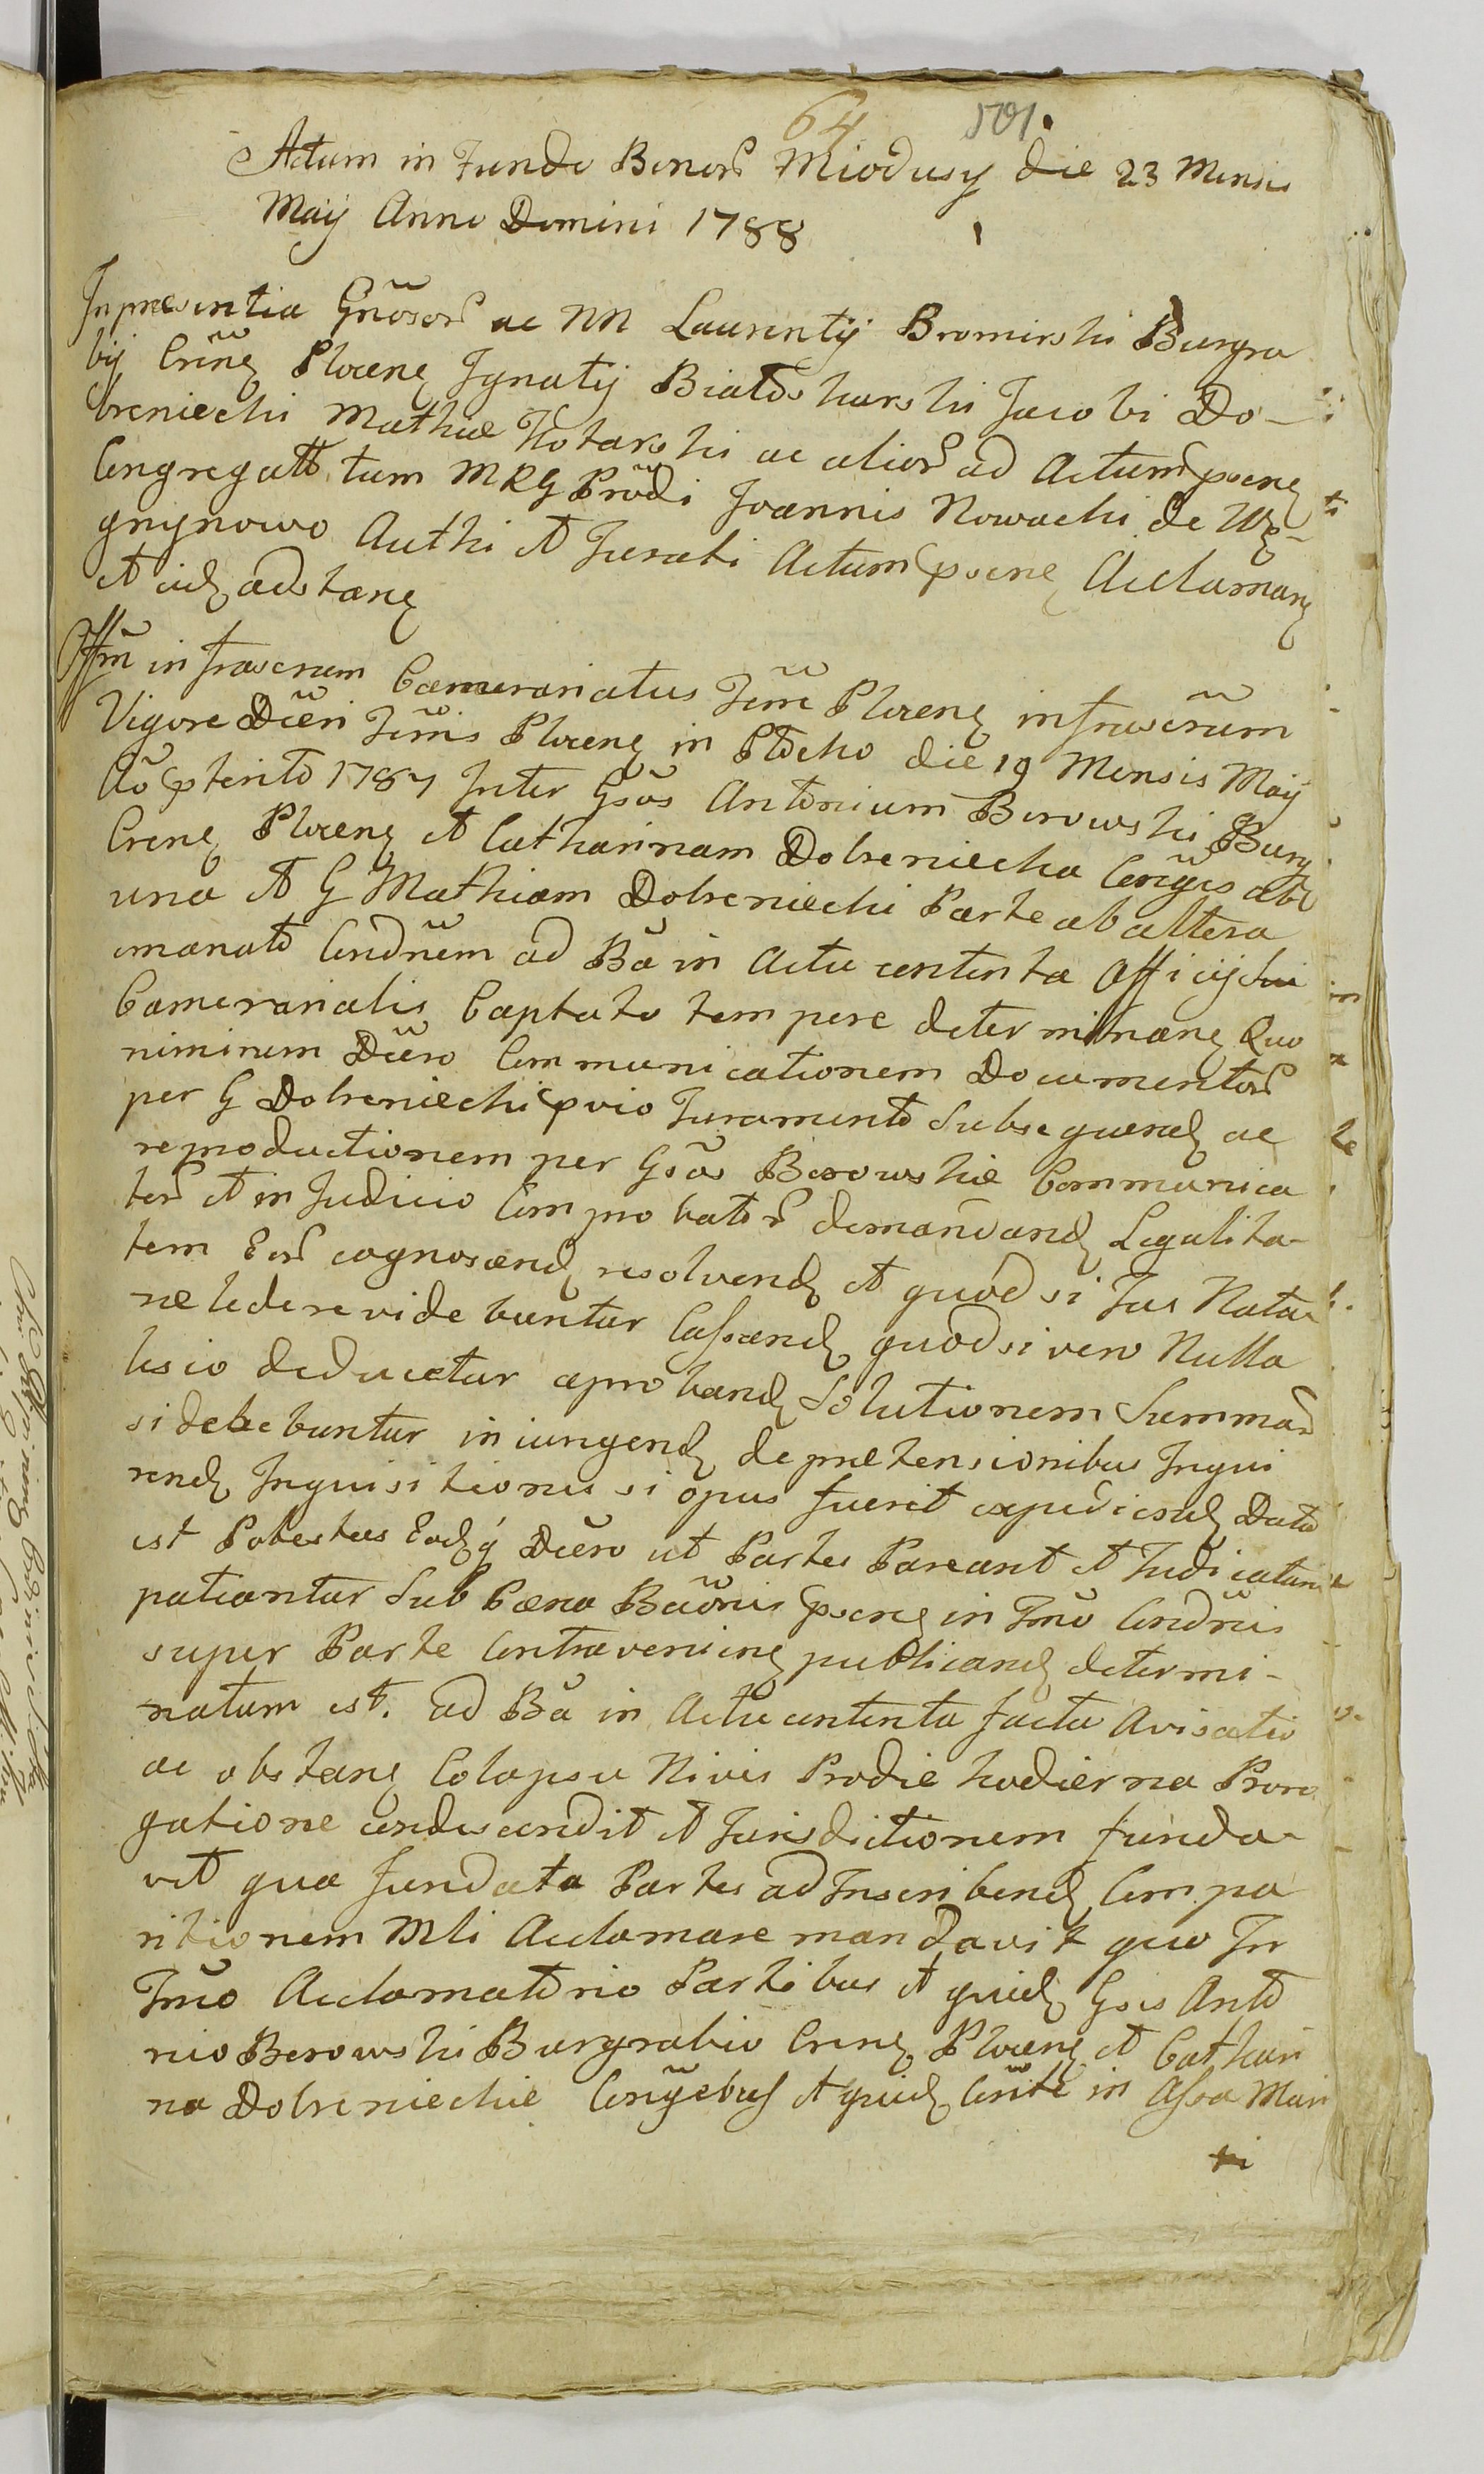 64 501.
Actum in Fundo Bonor Miodusy die 23 Mensis
Maij Anno Domini 1788
In presentia Gnosor ac NN Laurentij Bromirski Burgra
bij Crinẽ Plocenẽ Ignatij Białoskurski Jacobi Do-
breniecki Mathiæ Kotarski ac alior ad Actum psenẽ
Congregatt tum MRG Prudi Joannis Nowacki de Wę-
gnynowo Authi et Jurati Actum psenẽ Acclamanẽ
et eid adstanẽ
Offm infrascrum Camerariatus Trre Plocenẽ infrascrum
Vigore Dčeri Trris Plocenẽ in Płocko die 19 Mensis Maij
Ao pterito 1787 Inter Gsos Antonium Borowski Burg
Crenẽ Plocenẽ et Catharinam Dobreniecka Conjges ab
una et G Mathiam Dobreniecki Parte ab altera
emanato Condnem ad Ba in Actu contenta Officij sui
Camerarialis Captato tempere determinanẽ Quo
nimirum Dčero Communicationem Documentor
per G Dobreniecki pvio Juramento Subsequend ac
reproductionem per Gsos Borowskie Communica
tor et in Judicio Comprobator demandand Legalita-
tem Eor cognoscend resolvend et quod si Jus Natu-
ræ ledere videbuntur Cassand quod si vero Nulla
lesio deducetur aproband Solutionem Summar
si debebuntur iniungend de prætensionibus Inqui
rend Inquisitiones si opus fuerit expediend Data
est Potestas Eodq Dčero ut Partes Pareant et Judicatum
patiantur Sub Pæna Banonis psenẽ in Trno Condnis
super Parte Contravenienẽ publicand determi-
natum est. ad Ba in Actu contenta facta Avisatio
ac obstanẽ Colapsu Nivis Prodie hodierna Proro
gatione condescendit et Jurisdictionem funda-
vit qua fundata Partes ad Inscribend Compa
ritionem Mli Acclamare mandavit quo In
Trno Acclamatorio Partibus et quid Gsis Anto
nio Borowski Burgrabio Crenẽ Plocenẽ et Cathari
na Dobrenieckie Conjgebus et quid Conte in Assa Mari
ti